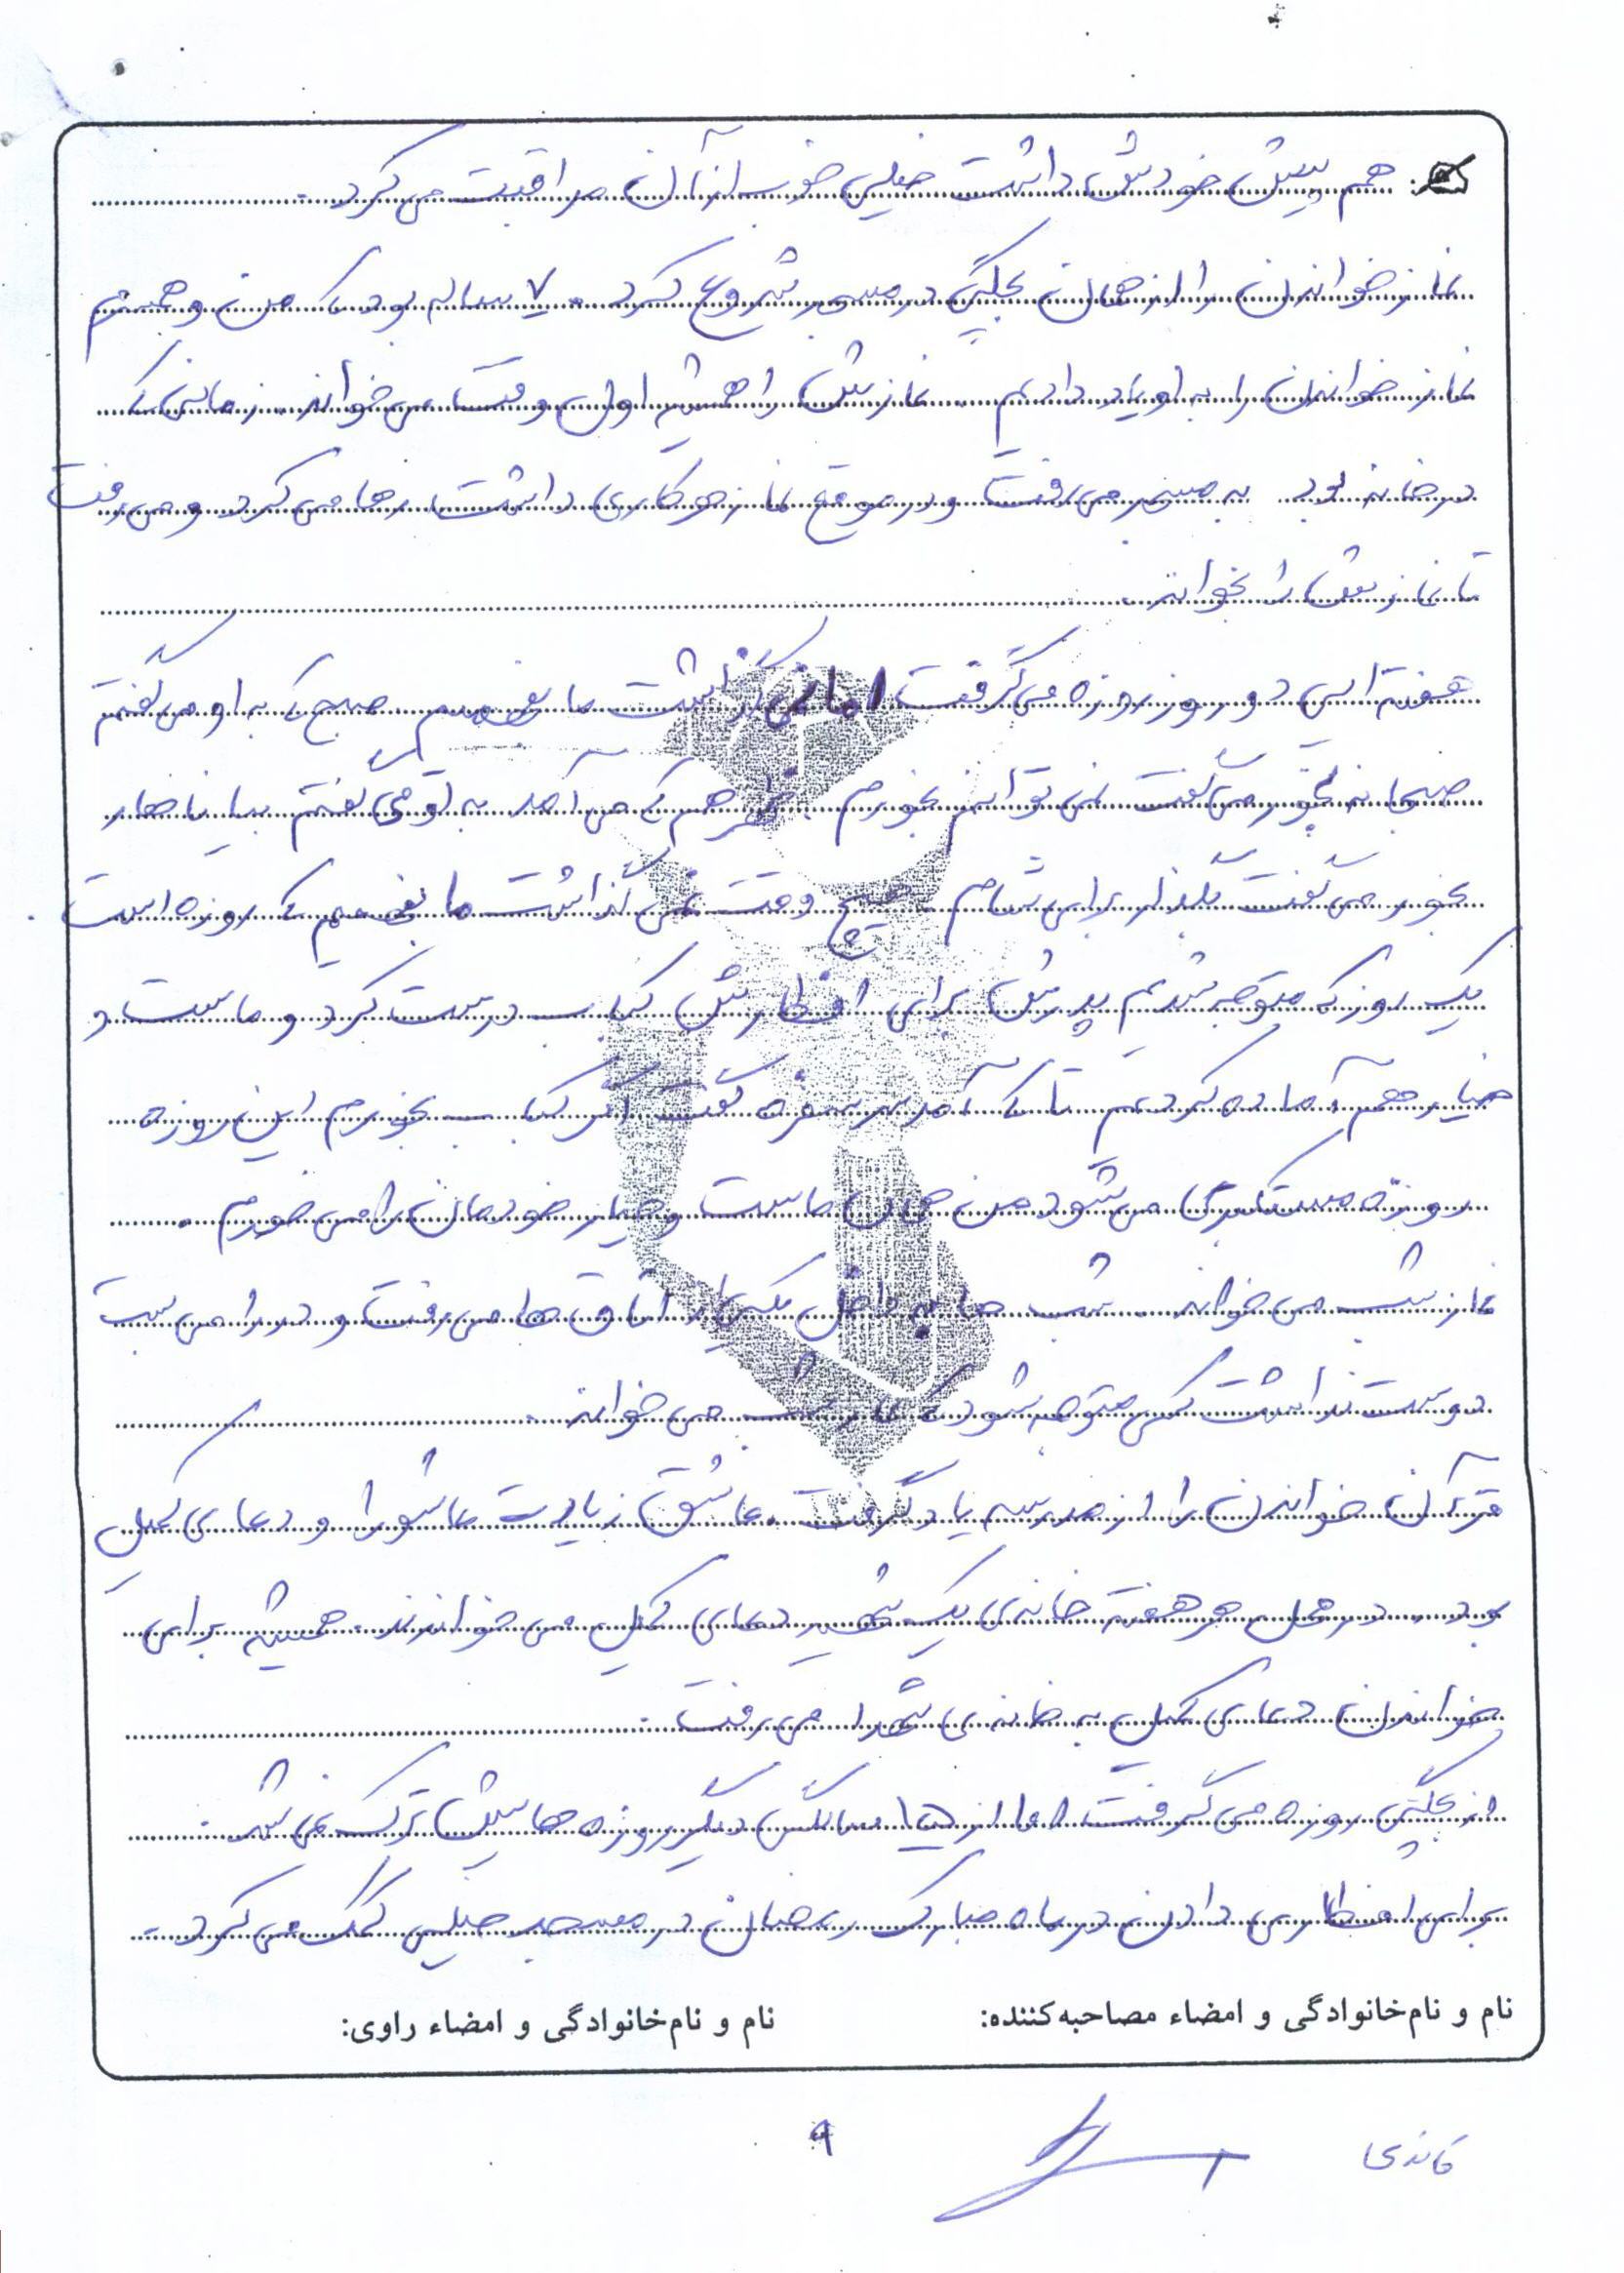 هم پیش خودش داشت خیلی خوب از آنان مراقبت می کرد.
نماز خواندن را از همان بچگی در مسجد شروع کرد. ۷ ساله بود که من و
نماز خواندن را به او یاد دادیم. نمازش را همیشه اول وقت می خواند. زمانی که
در خانه بود به مسجد می رفت و در موقع نماز هر کاری داشت رها می کرد و می رفت
تا نمازش را بخواند.
هفته ای دو روز روزه می گرفت اما نمی گذاشت ما بفهمیم. صبح که به او می گفتم
صبحانه بخور می گفت نمی توانم بخورم. ظهر هم که می آمد به او می گفتم بیا ناهار
بخور می گفت بگذار برای شام هیچ وقت نمی گذاشت ما بفهمیم که روزه است.
یک روز که متوجه شدیم پدرش برای افطارش کباب درست کرد و ماست و
خیار هم آماده کردیم تا که آمد سر سفره گفت اگر کباب بخورم این روزه
روزه مستکبری می شود من همان ماست و خیار خودمان را می خورم.
نماز شب می خواند. شب ها به داخل یکی از اتاق ها می رفت و در را می بست
دوست نداشت کسی متوجه شود که نماز شب می خواند.
قرآن خواندن را از مدرسه یاد گرفت. عاشق زیارت عاشورا و دعای کمیل
بود. در محل هر هفته خانه ی یک شهید دعای کمیل می خواندند. همیشه برای
خواندن دعای کمیل به خانه ی شهدا می رفت.
از بچگی روزه می گرفت اما از سالگی دیگر روزه هایش ترک نمی شد.
برای افطاری دادن در ماه مبارک رمضان در مسجد خیلی کمک می کرد.
نام و نام‌خانوادگی و امضاء مصاحبه‌کننده: نام و نام‌خانوادگی و امضاء راوی:
۹